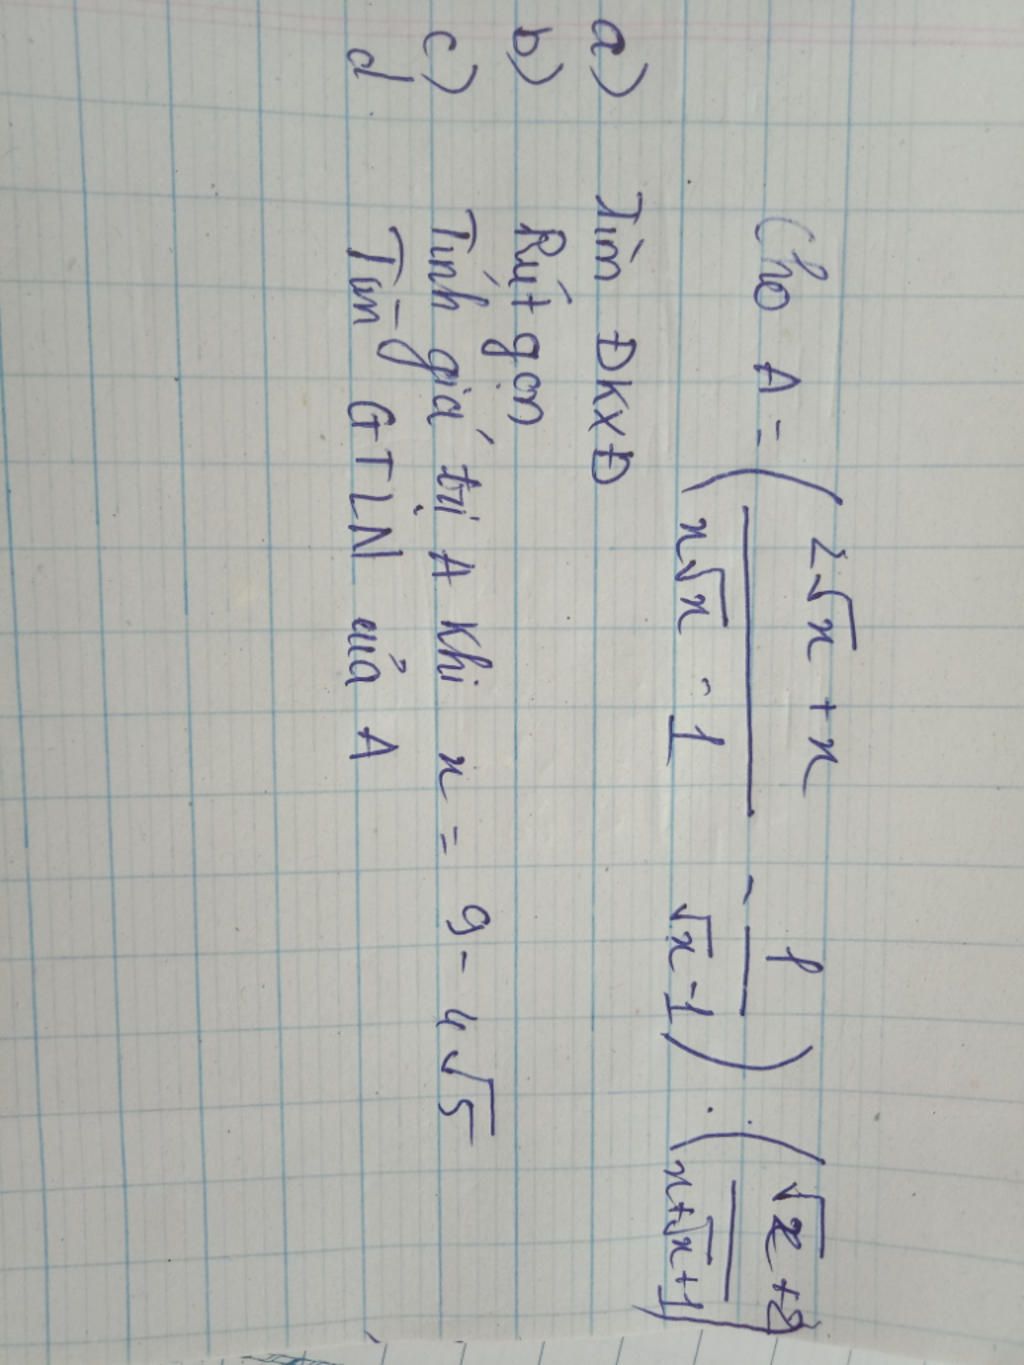 Cho A = ( (2√x + x)/(x√x - 1) - 1/(√x - 1) ) : ( (√x + 2)/(x + √x + 1) )
a) Tìm ĐKXĐ
b) Rút gọn
c) Tính giá trị A khi x = 9 - 4√5
d. Tìm GTLN của A